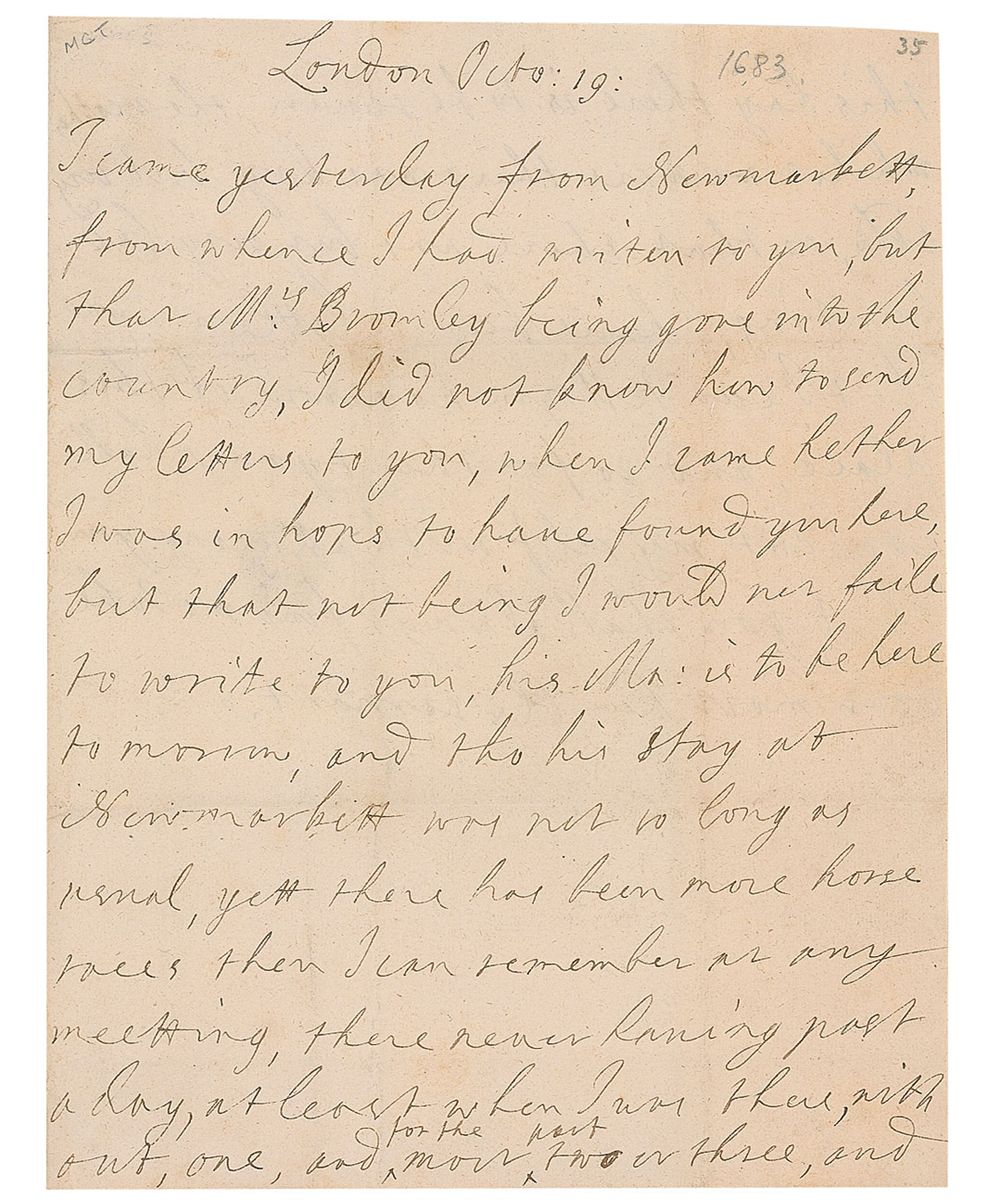 MGT
London Octo: 19: 1683 35
I came yesterday from Newmarkett,
from whence I had writen to you, but
that Mrs Bromley being gone into the
country, I did not know how to send
my letters to you, when I came hether
I was in hops to haue found you here,
but that not being I would not faile
to write to you, his Ma: is to be here
to morow, and tho his stay at
Newmarkett was not so long as
usual, yett there has been more horse
races then I can remember at any
meetting, there neuer hauing past
a day, at least when I was there, with
out, one, and for the most part two or three, and